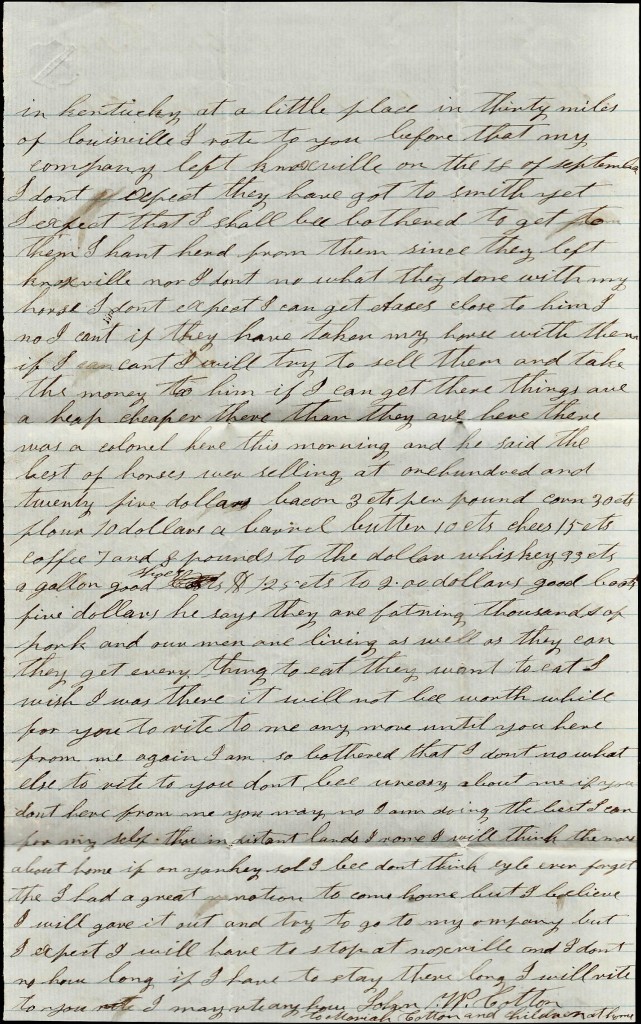 in kentucky at a little place in thirty miles
of louisville I rote to you before that my
company left knoxville on the 18 of september
I dont expect they have got to smith yet
I expect that I shall bee bothered to get to
them I hant herd from them since they left
knoxville nor I dont no what they done with my
horse I dont expect I can get close to him I
no I cant if they have taken my horse with them
if I can cant I will try to sell them and take
the money to him if I can get there things are
a heap cheaper there than they are here there
was a colonel here this morning and he said the
best of horses wer selling at onehundred and
twenty five dollars bacon 3 cts per pound corn 30 cts
flour 10 dollars a barrel butter 10 cts chees 15 cts
coffee 7 and 8 pounds to the dollar whiskey 33 cts
a gallon good shoes $ 1.25 cts to 2.00 dollars good boots
five dollars he says they are fatning thousands of
pork and our men are living as well as they can
they get every thing to eat they want to eat I
wish I was there it will not bee worth while
for you to rite to me any more until you here
from me again I am so bothered that I dont no what
else to rite to you dont bee uneasy about me if you
dont here from me you may no I am doing the best I can
for my self tho in distant lands I rome I will think the more
about home if on yankey soil I bee dont think Ile ever forget
the I had a great notion to come home but I believe
I will gave it out and try to go to my company but
I expect I will have to stop at noxville and I dont
no how long if I have to stay there long I will rite
to you I may rite any how John W. Cotton
to Mariah Cotton and children at home